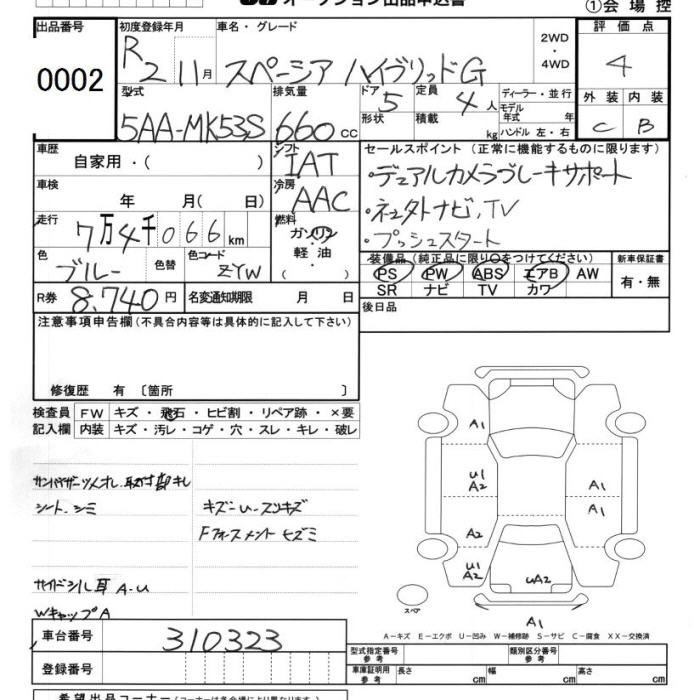 オークション出品申込書
①会場控
出品番号 初度登録年月 車名・グレード 評価点
0002 R2 11月 スペーシア ハイブリッドG 2WD・4WD 4
型式 排気量 ドア 定員 ディーラー・並行 外装 内装
5AA-MK53S 660cc 5 4人 モデル年式 年 C B
形状 積載 kg ハンドル 左・右
車歴 シフト セールスポイント (正常に機能するものに限ります)
自家用・( ) IAT ・デュアルカメラブレーキサポート
車検 年 月( 日) 冷房 AAC ・ネュ外ナビ,TV
走行 7万4千066km 燃料 ガソリン 軽油 ・( ) ・プッシュスタート
色 ブルー 色替 色コード ZYW
装備品 (純正品に限り○をつけてください) 新車保証書
PS PW ABS エアB AW 有・無
SR ナビ TV カワ
R券 8,740円 名変通知期限 月 日 後日品
注意事項申告欄 (不具合内容等は具体的に記入して下さい)
修復歴 有 〔箇所 〕
検査員 FW キズ・飛石・ヒビ割・リペア跡・×要
記入欄 内装 キズ・汚レ・コゲ・穴・スレ・キレ・破レ
サンバイザーツメオレ.取付部キレ
シート.シミ キズー.U-スリキズ
Fフォースメント キズミ
サイドシル耳 A-U
WキャップA
A1
U1 A2
A1
A1
A2
U1 A2
UA2
スペア
A1
A－キズ E－エクボ U－凹み W－補修跡 S－サビ C－腐食 XX－交換済
車台番号 310323 型式指定番号 参考 類別区分番号 参考
登録番号 車庫証明用 参考 長さ cm 幅 cm 高さ cm
希望出品コーナー (コーナーは各会場により異なります)